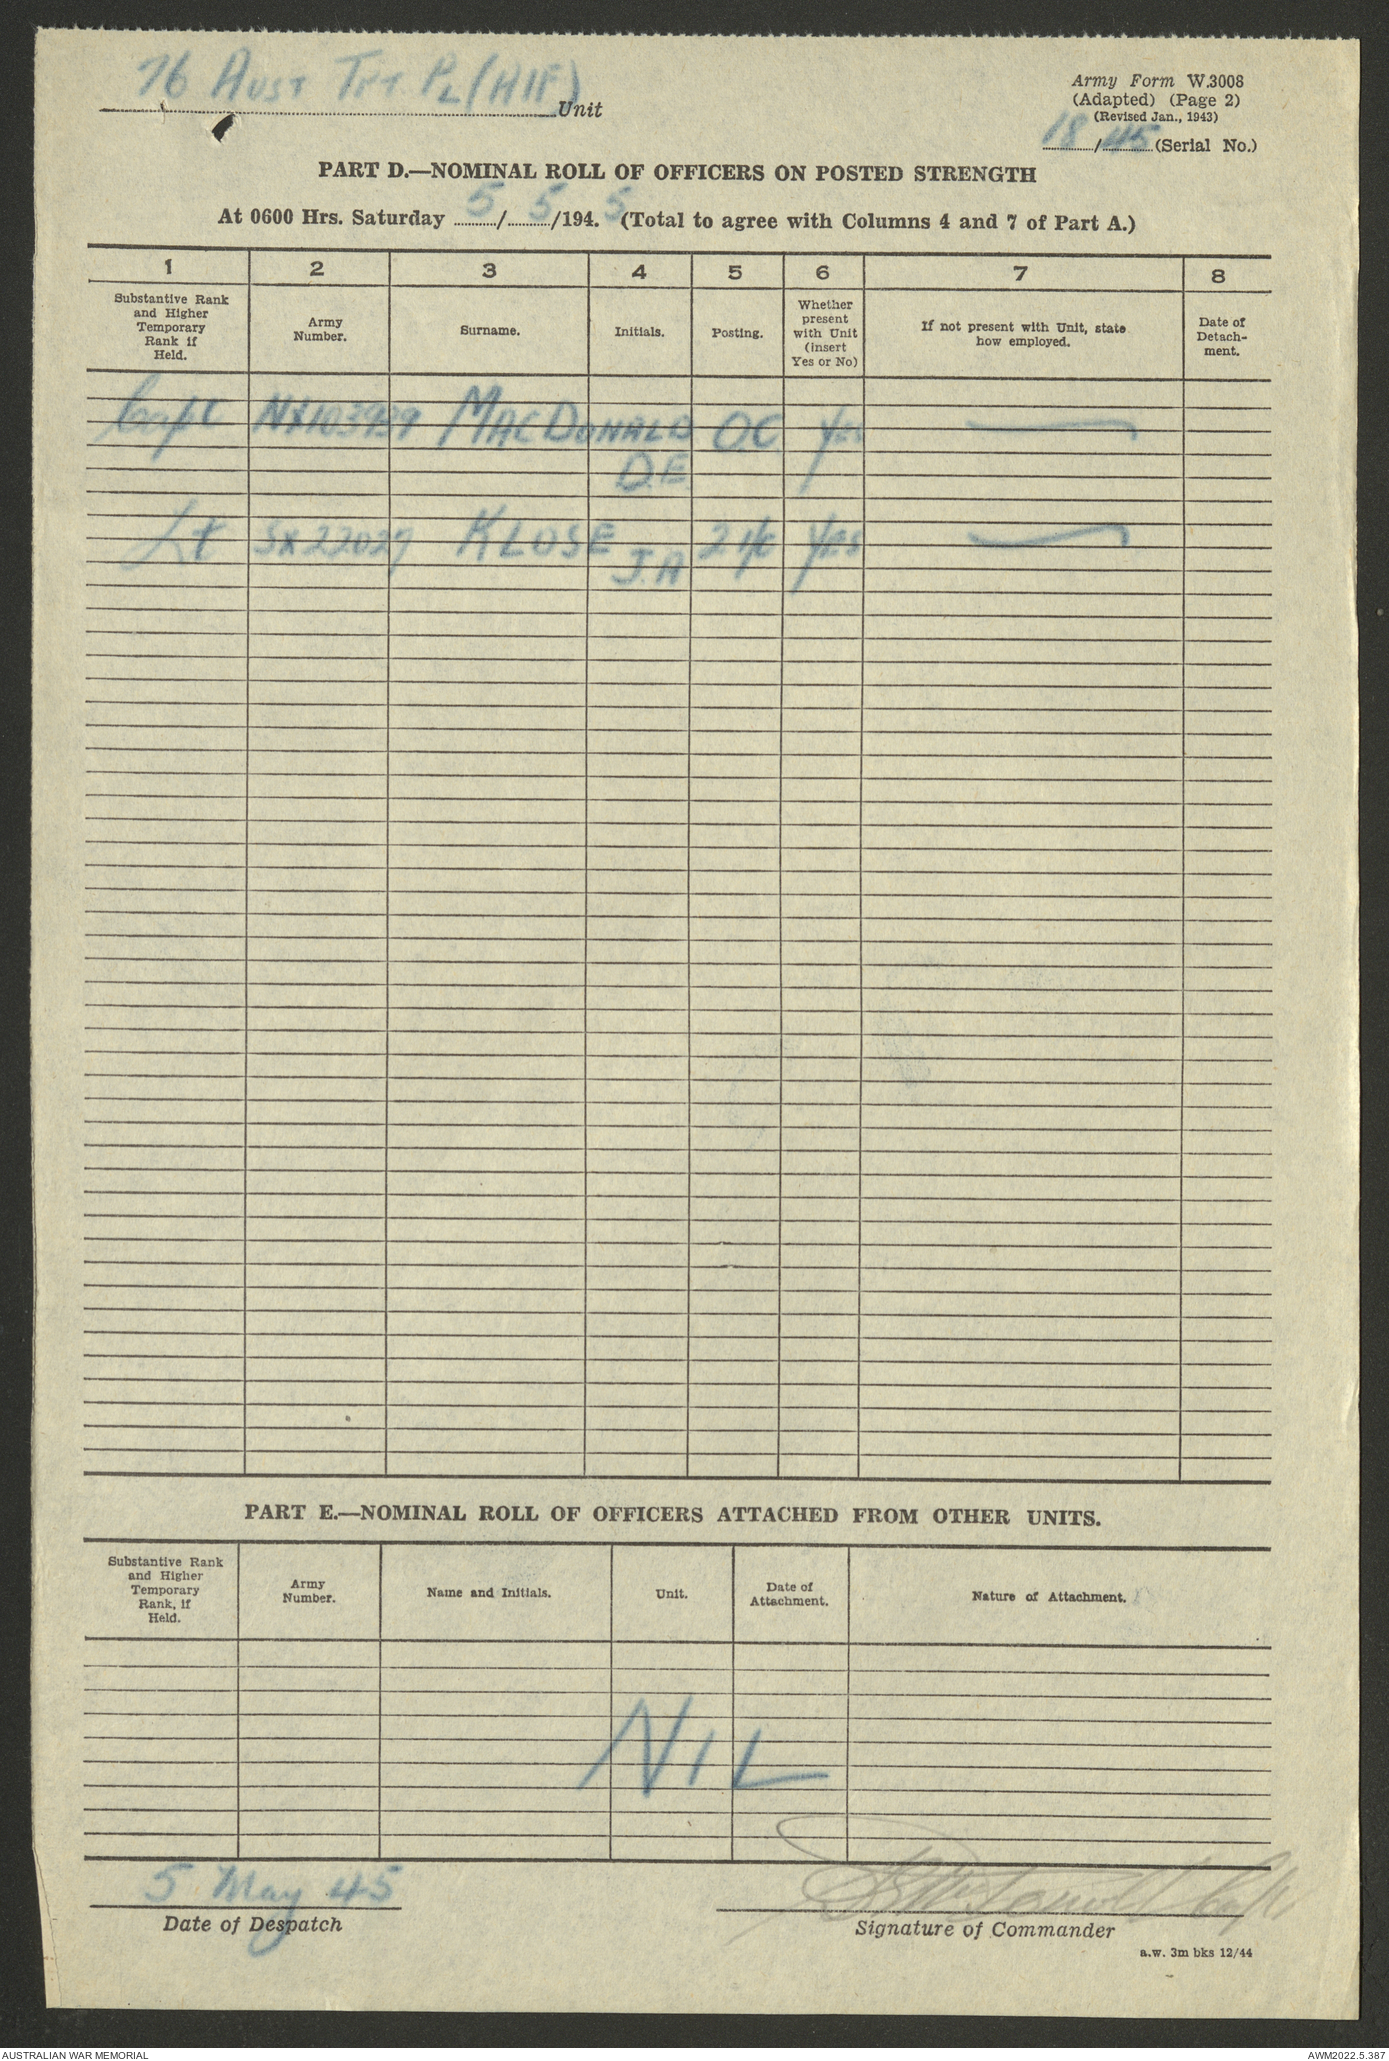 76 AUST TPT. PL (AIF) Unit
Army Form W.3008
(Adapted) (Page 2)
(Revised Jan., 1943)
18/45 (Serial No.)
PART D.—NOMINAL ROLL OF OFFICERS ON POSTED STRENGTH
At 0600 Hrs. Saturday 5/5/194.5 (Total to agree with Columns 4 and 7 of Part A.)
1 2 3 4 5 6 7 8
Substantive Rank
and Higher
Temporary
Rank if
Held.
Army
Number.
Surname.
Initials.
Posting.
Whether
present
with Unit
(insert
Yes or No)
If not present with Unit, state
how employed.
Date of
Detach-
ment.
Capt NX103939 MACDONALD O.C. Yes —
D.E.
Lt SX22027 KLOSE 2 i/c Yes —
J.A
PART E.—NOMINAL ROLL OF OFFICERS ATTACHED FROM OTHER UNITS.
Substantive Rank
and Higher
Temporary
Rank, if
Held.
Army
Number.
Name and Initials.
Unit.
Date of
Attachment.
Nature of Attachment.
NIL
5 May 45
Date of Despatch
Capt.
Signature of Commander
a.w. 3m bks 12/44
AUSTRALIAN WAR MEMORIAL
AWM2022.5.387